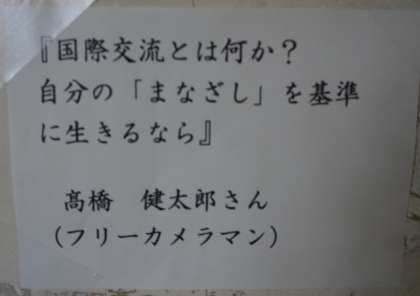 『国際交流とは何か？
自分の「まなざし」を基準
に生きるなら』
髙橋　健太郎さん
（フリーカメラマン）